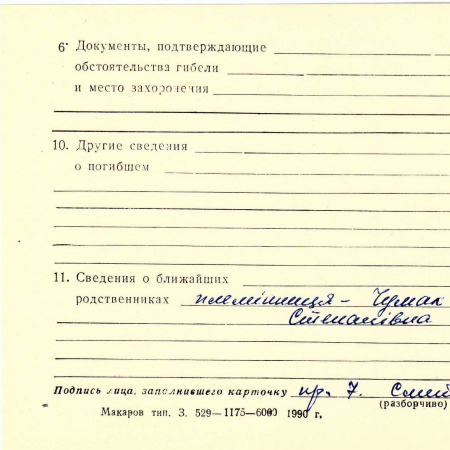 6· Документы, подтверждающие
обстоятельства гибели
и место захоронения
10. Другие сведения
о погибшем
11. Сведения о ближайших
родственниках племінниця – Чумак
Степанівна
Подпись лица, заполнившего карточку
(разборчиво)
Макаров тип. З. 529—1175—6000 1990 г.